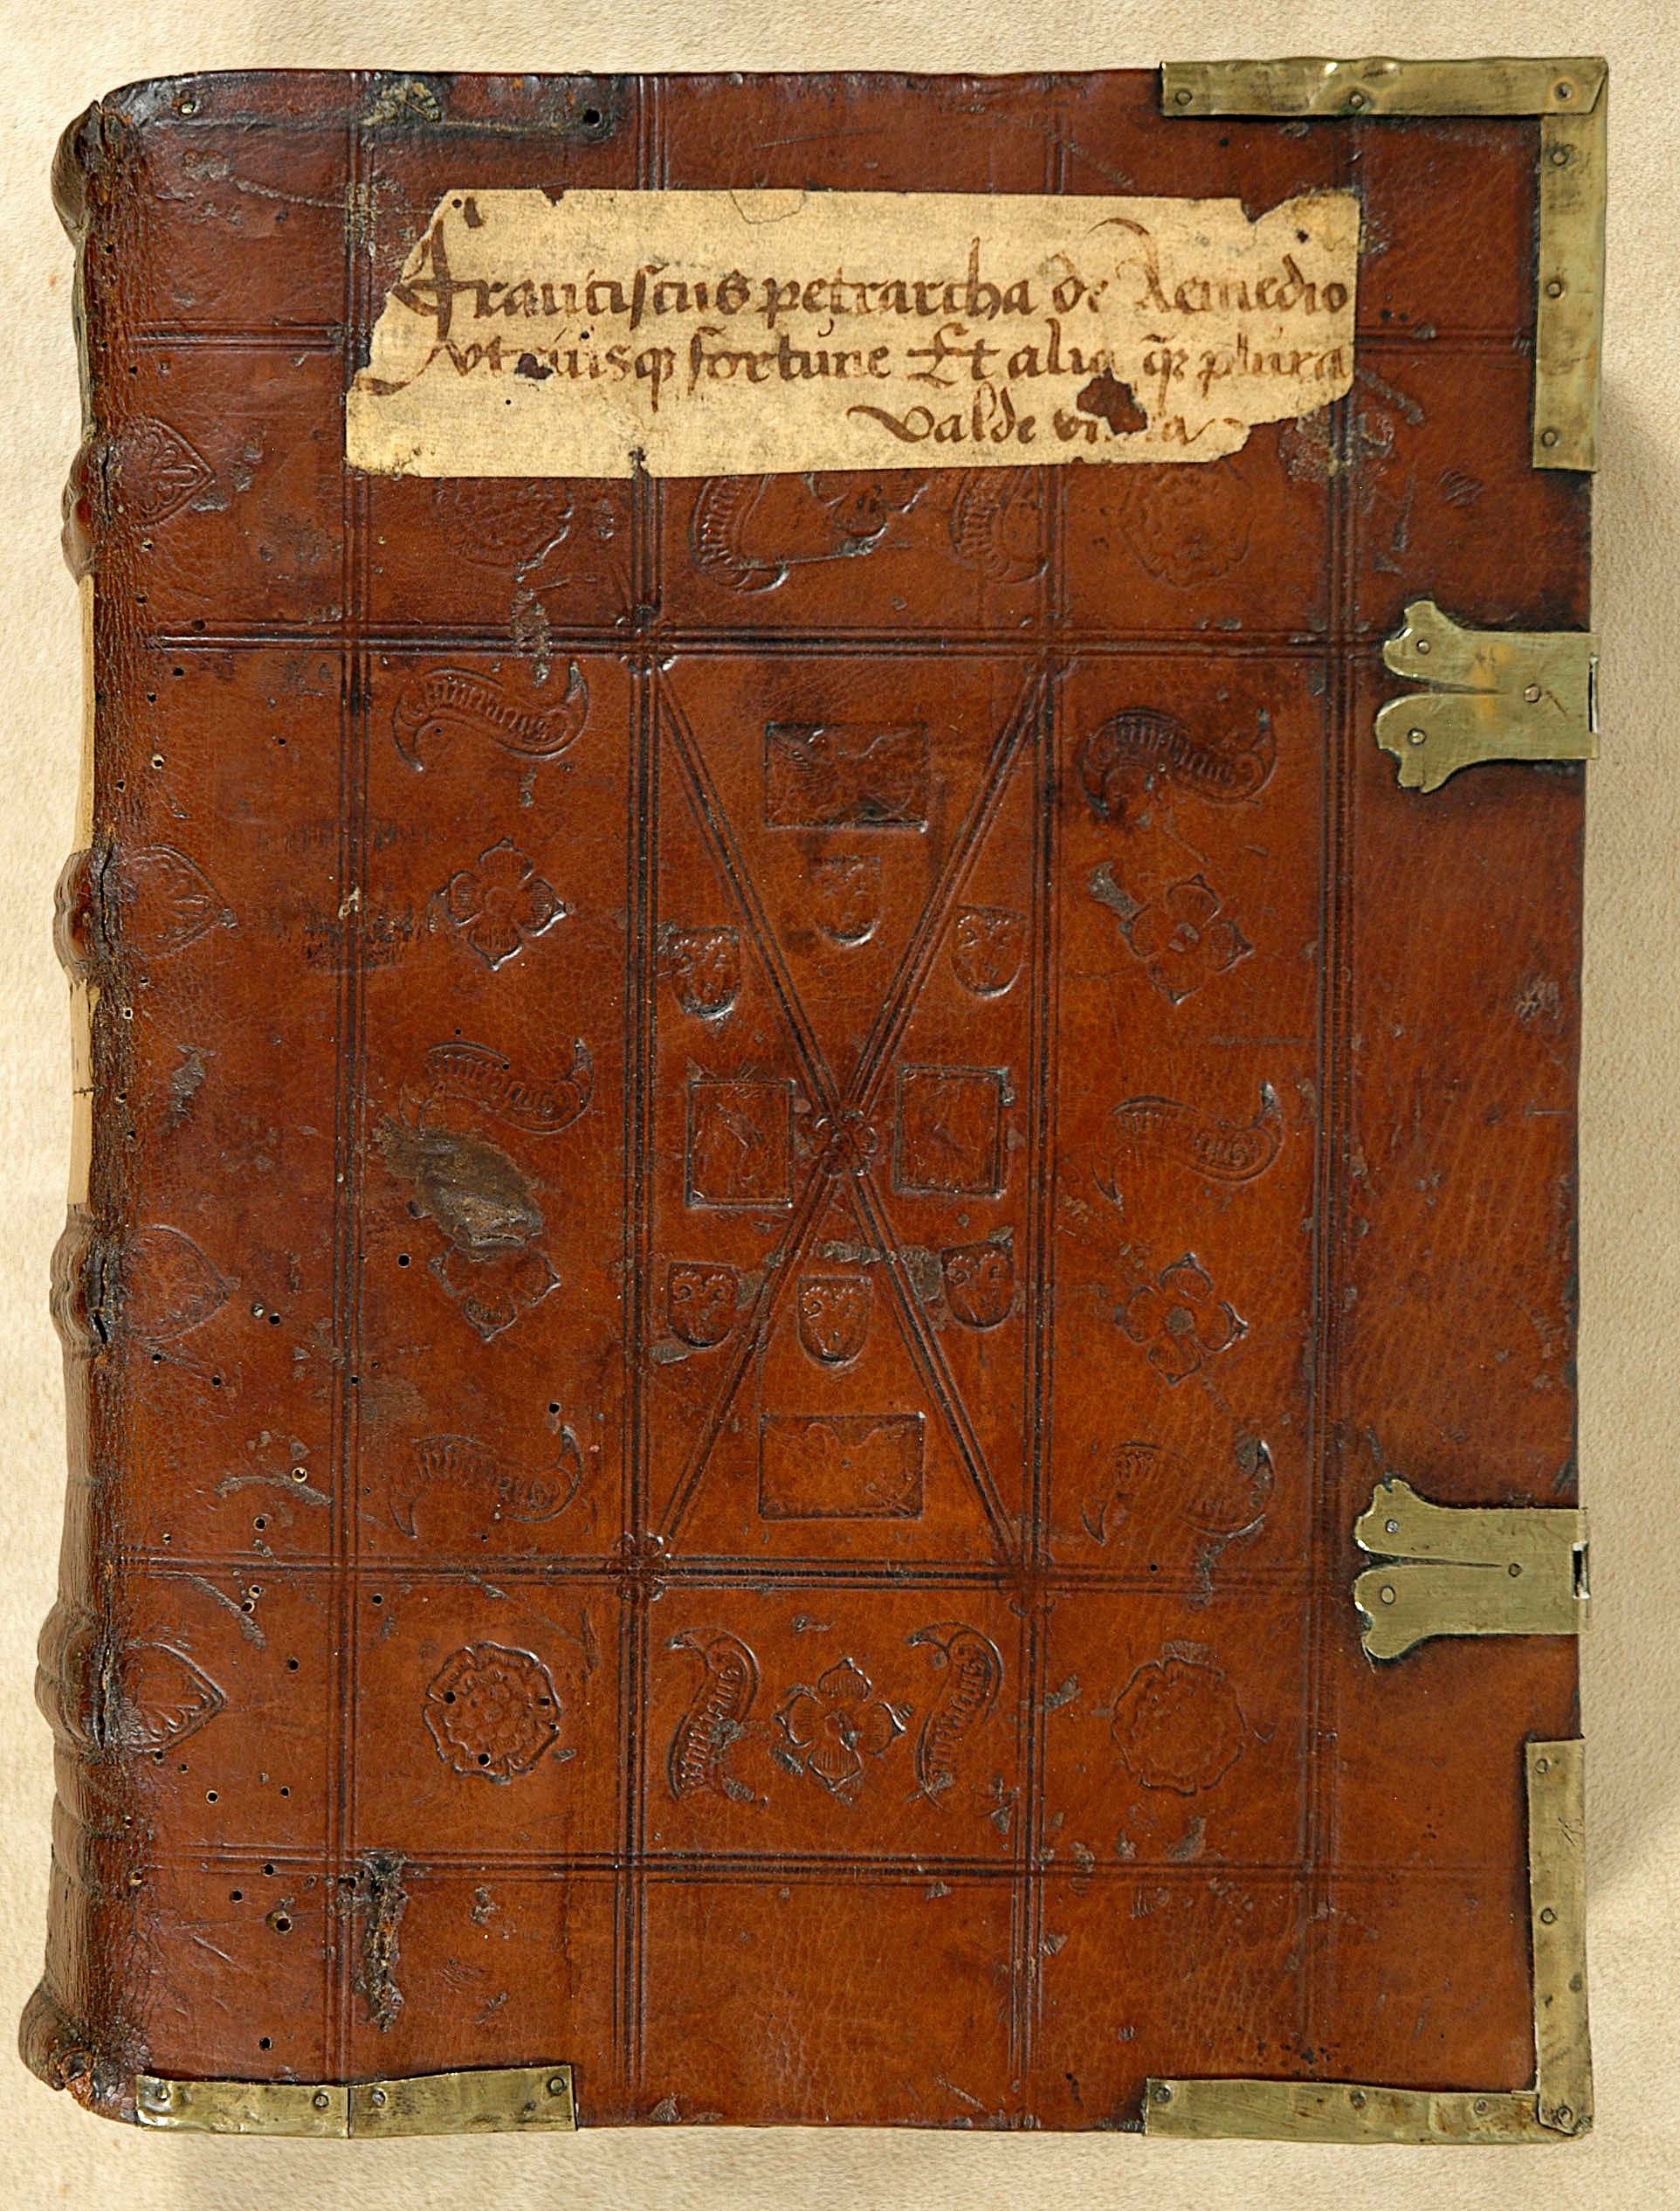 Franciscus petrarcha de Remedio
vtriusqꝫ fortune Et alia qꝫ plura
valde